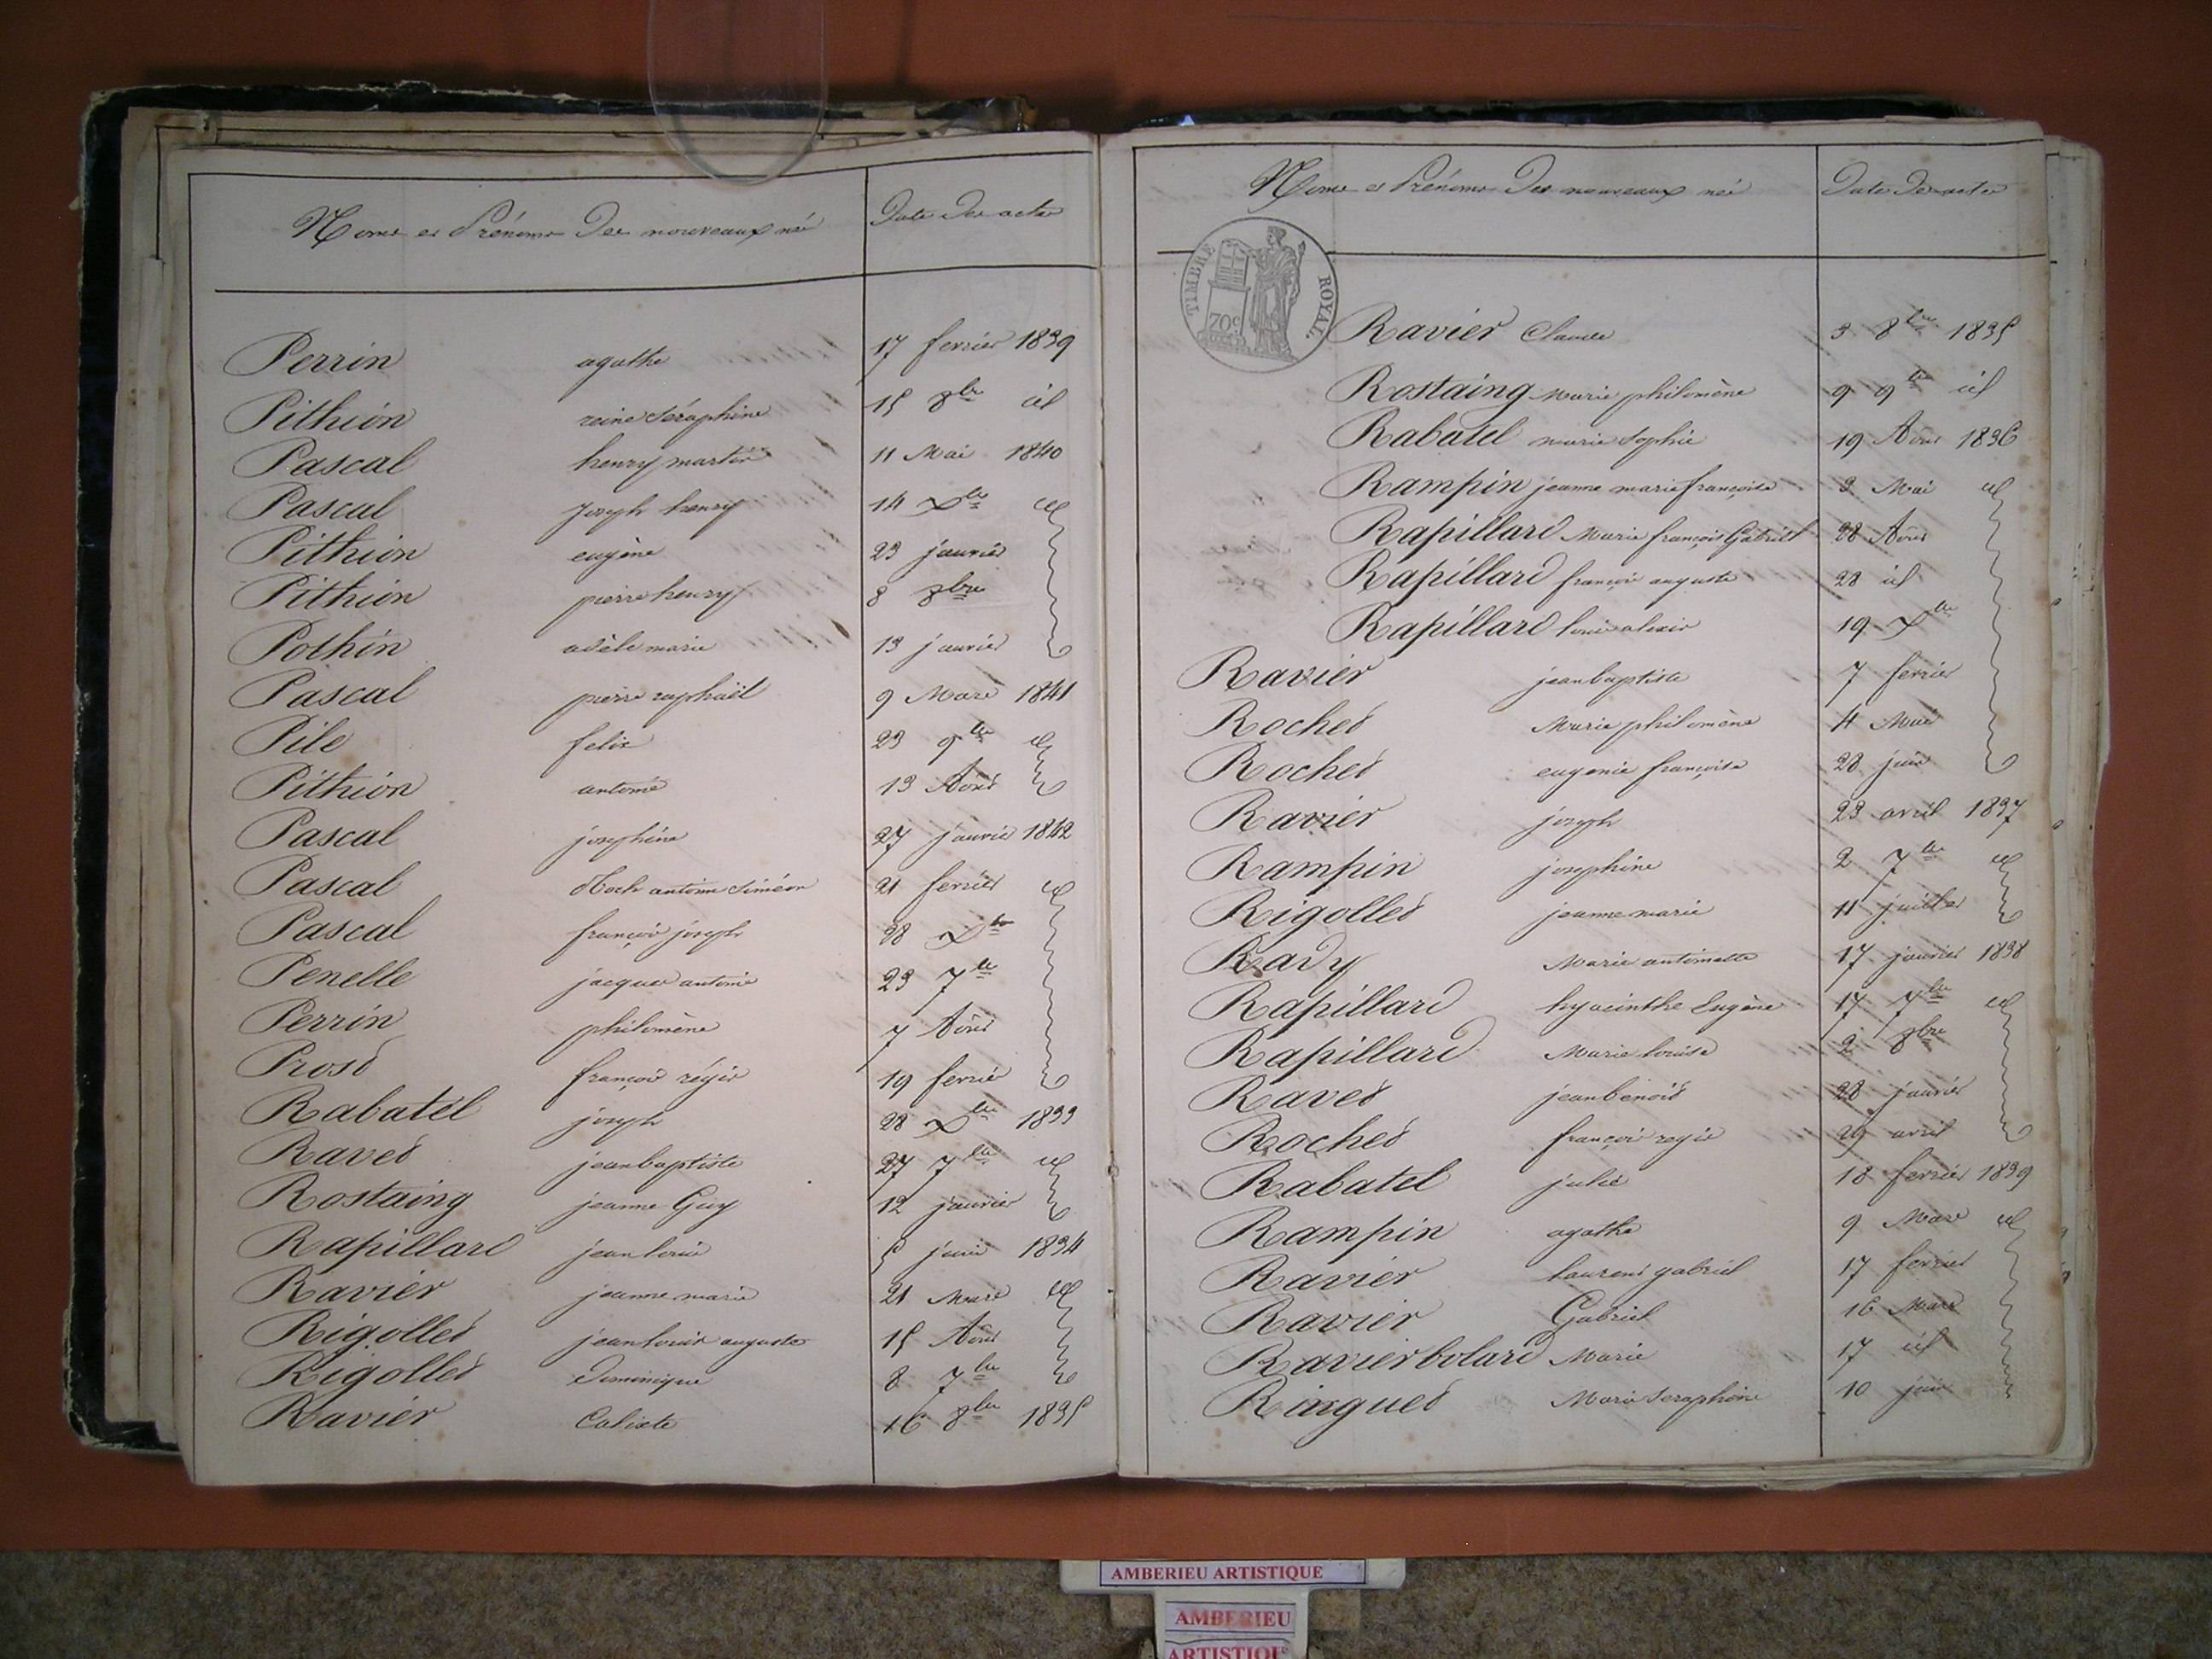 Noms et Prénoms des nouveaux né Date des actes
Perrin agathe 17 fevrier 1839
Pithion reine Séraphine 15 8bre id
Pascal henry martin 11 Mai 1840
Pascal joseph henry 14 Xbre id
Pithion eugène 23 janvier
Pithion pierre henry 8 8bre
Pothin adèle marie 13 janvier
Pascal pierre raphaël 9 Mars 1841
Pile felix 23 9bre id
Pithion antoine 13 Août
Pascal josephine 27 janvier 1842
Pascal Roch antoine Siméon 21 fevrier id
Pascal françois joseph 28 Xbre
Penelle jacques antoine 23 7bre
Perrin philomène 7 Août
Prost françois régis 19 fevrier
Rabatel joseph 28 Xbre 1833
Ravet jean baptiste 27 7bre id
Rostaing jeanne Guy 12 janvier
Rapillard jean louis 5 juin 1834
Ravier jeanne marie 21 Mars id
Rigollet jean louis auguste 15 Août
Rigollet Dominique 8 7bre
Ravier Calixte 16 8bre 1835
Noms et Prénoms des nouveaux né Date des actes
TIMBRE ROYAL.
70c
Ravier Claude 3 8bre 1835
Rostaing Marie philomène 9 9bre id
Rabatel marie Sophie 19 Août 1836
Rampin jeanne marie françoise 3 Mai id
Rapillard Marie françois Gabriel 28 Août
Rapillard françois auguste 28 id
Rapillard louis alexis 19 Xbre
Ravier jean baptiste 7 fevrier
Rochet Marie philomène 4 Mai
Rochet eugenie françoise 28 juin
Ravier joseph 23 avril 1837
Rampin josephine 2 7bre id
Rigollet jeanne marie 11 juillet
Rady Marie antoinette 17 janvier 1838
Rapillard hyacinthe Eugène 17 7bre id
Rapillard Marie louise 2 8bre
Ravet jean benoit 28 janvier
Rochet françois regis 29 avril
Rabatel julie 18 fevrier 1839
Rampin agathe 9 Mars id
Ravier laurent gabriel 17 fevrier
Ravier Gabriel 16 Mars
Ravier bolard Marie 17 id
Ringuet Marie Seraphine 10 juin
AMBERIEU ARTISTIQUE
AMBERIEU
ARTISTIQUE